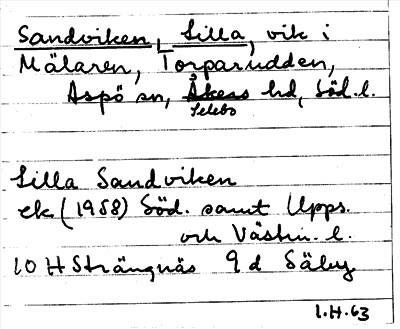 Sandviken, Lilla, vik i
Mälaren, Torparudden,
Aspö sn, Åkers hd, Söd. l.
Selebo
Lilla Sandviken
ek (1958) Söd. samt Upps.
och Västm. l.
10 H Strängnäs 9 d Säby
I.H. 63